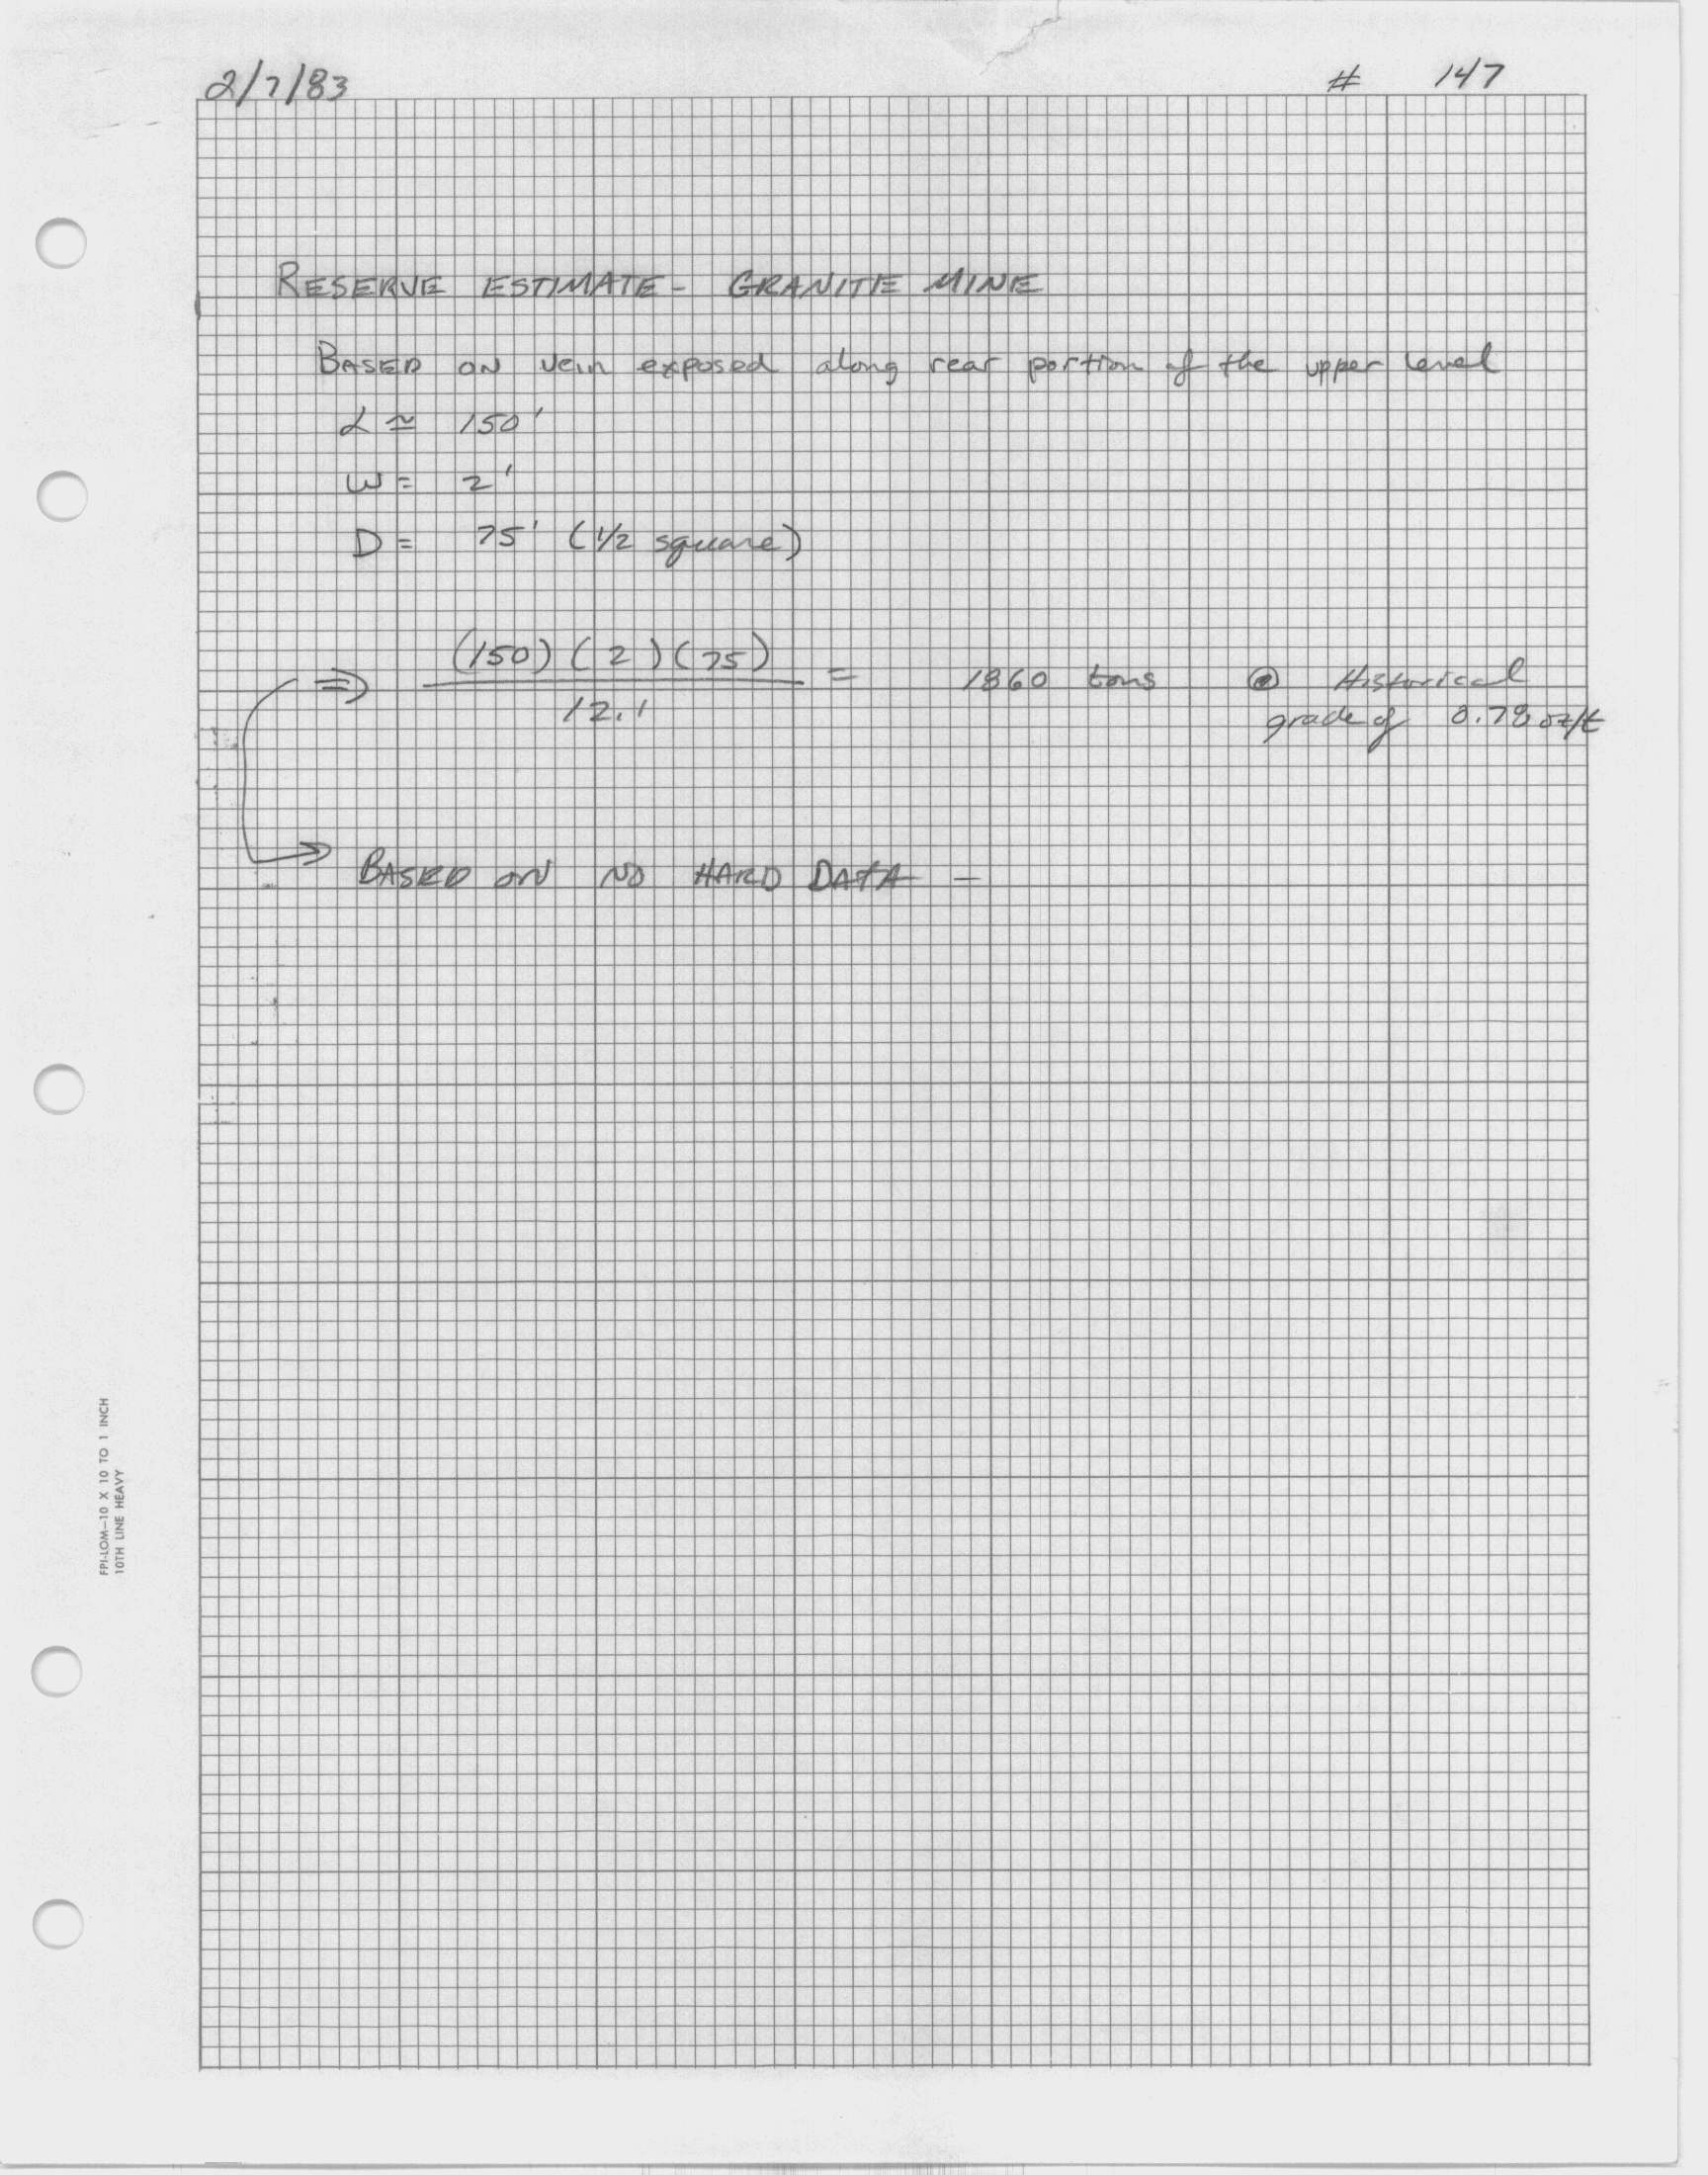 2/7/83 # 147
RESERVE ESTIMATE - GRANITE MINE
BASED ON vein exposed along rear portion of the upper level
L ≃ 150'
W = 2'
D = 75' (1/2 square)
⇒ (150)(2)(75) = 1860 tons @ Historical
12.1
grade of 0.78 oz/t
BASED ON NO HARD DATA —
FPI-LOM—10 X 10 TO 1 INCH
10TH LINE HEAVY